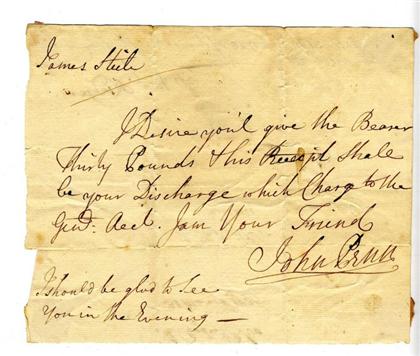 James Steele
I Desire you'l give the Bearer
Thirty Pounds & this Receipt Shall
be your Discharge which Charge to the
Genl: Acct. I am Your Friend
John Penn
I should be glad to See
You in the Evening —